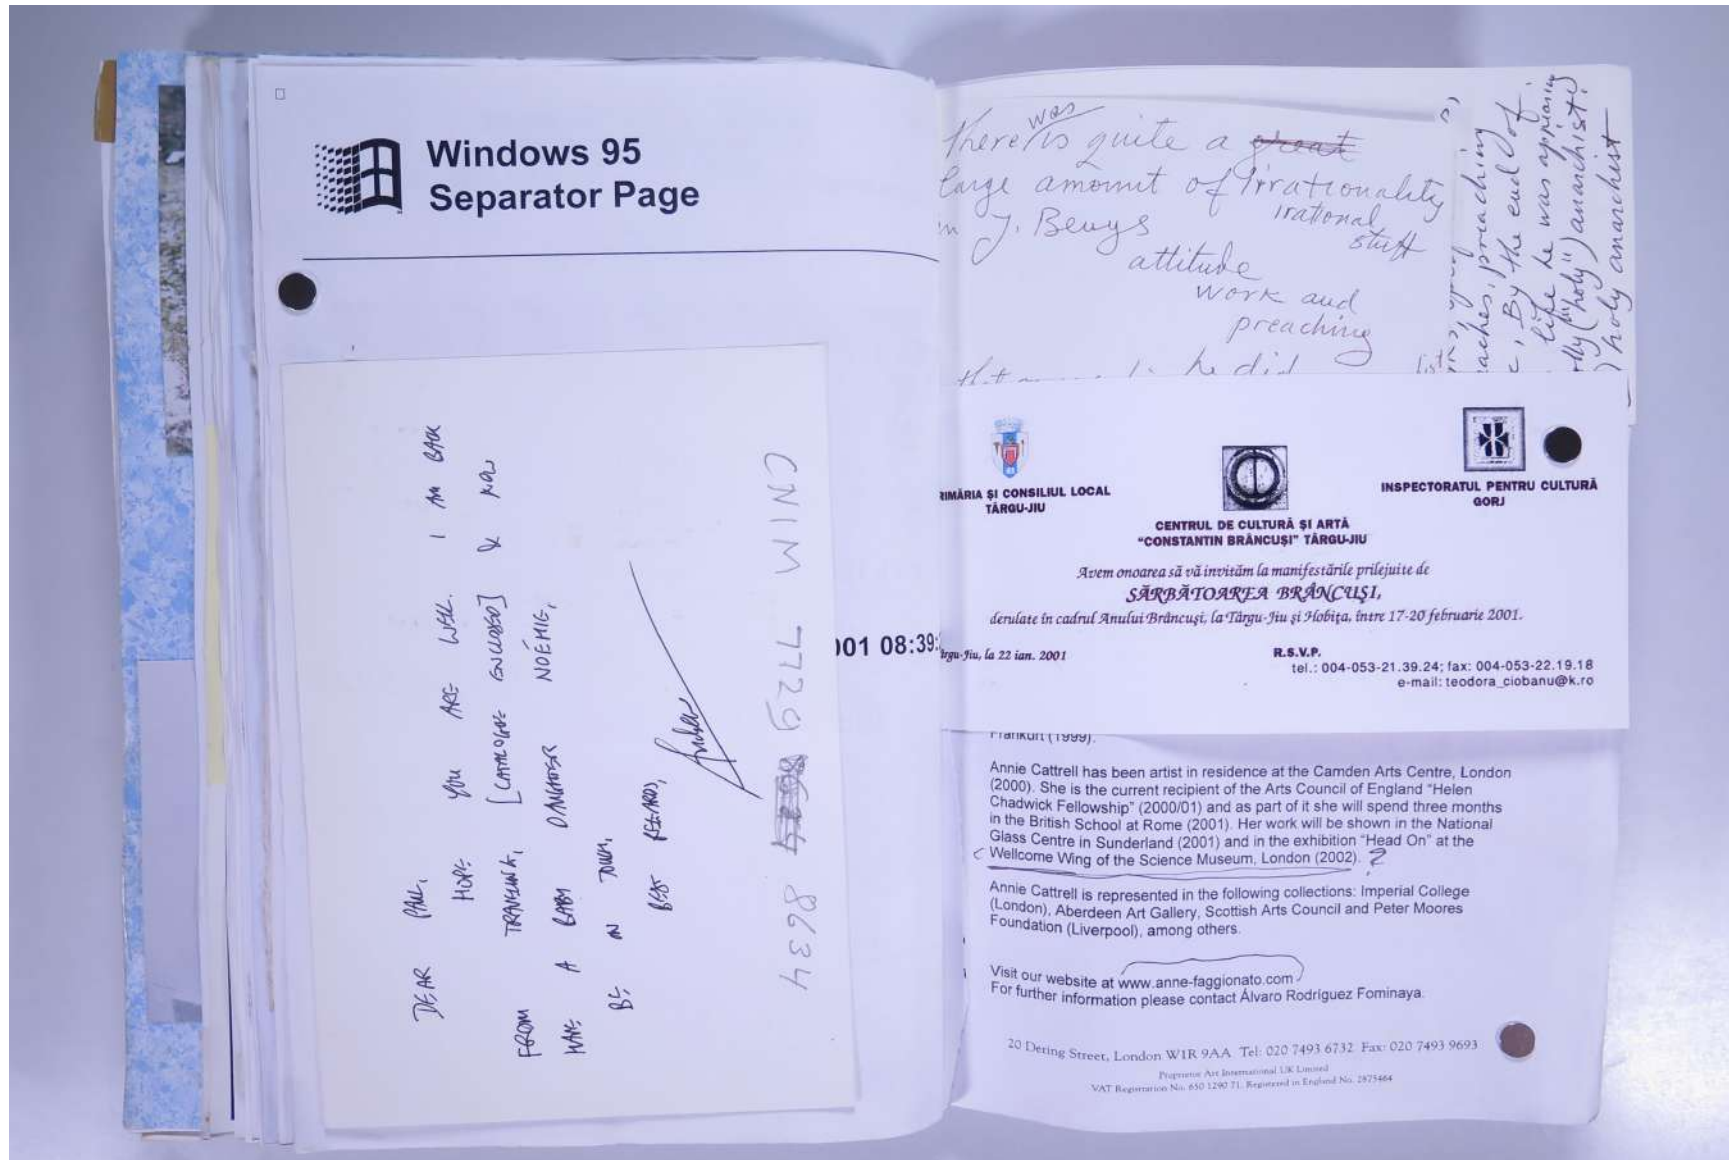 Windows 95
Separator Page
001 08:39:
DEAR PAUL,
HOPE YOU ARE WELL. I AM BACK
FROM TRAVELING, [CATALOGUE ENCLOSED] & NOW
HAVE A BABY DAUGHTER NOÉMIE,
BE IN TOUCH,
BEST REGARDS,
CNIM 7729 8634
there is quite a great
was
large amount of irrationality
irational
stuff
in J. Beuys
attitude
work and
preaching
he did
list
aches, preaching
c, By the end of
like he was appearing
("holy") anarchist.
) holy anarchist
RIMĂRIA ȘI CONSILIUL LOCAL
TÂRGU-JIU
CENTRUL DE CULTURĂ ȘI ARTĂ
"CONSTANTIN BRÂNCUȘI" TÂRGU-JIU
INSPECTORATUL PENTRU CULTURĂ
GORJ
Avem onoarea să vă invităm la manifestările prilejuite de
SĂRBĂTOAREA BRÂNCUȘI,
derulate în cadrul Anului Brâncuși, la Târgu-Jiu și Hobița, între 17-20 februarie 2001.
ârgu-Jiu, la 22 ian. 2001
R.S.V.P.
tel.: 004-053-21.39.24; fax: 004-053-22.19.18
e-mail: teodora_ciobanu@k.ro
Frankurt (1999).
Annie Cattrell has been artist in residence at the Camden Arts Centre, London
(2000). She is the current recipient of the Arts Council of England "Helen
Chadwick Fellowship" (2000/01) and as part of it she will spend three months
in the British School at Rome (2001). Her work will be shown in the National
Glass Centre in Sunderland (2001) and in the exhibition "Head On" at the
Wellcome Wing of the Science Museum, London (2002). ?
Annie Cattrell is represented in the following collections: Imperial College
(London), Aberdeen Art Gallery, Scottish Arts Council and Peter Moores
Foundation (Liverpool), among others.
Visit our website at www.anne-faggionato.com
For further information please contact Álvaro Rodríguez Fominaya.
20 Dering Street, London W1R 9AA Tel: 020 7493 6732 Fax: 020 7493 9693
Proprietor Art International UK Limited
VAT Registration No. 650 1290 71. Registered in England No. 2875464